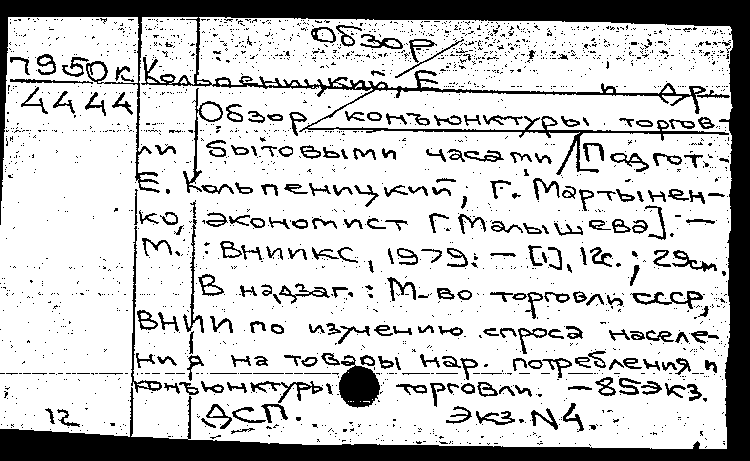 Обзор
7950к Кольпеницкий, Е и др.
4444 Обзор конъюнктуры торгов-
ли бытовыми часами / [Подгот.:
Е. Кольпеницкий, Г. Мартынен-
ко, экономист Г. Малышева]. —
М. : ВНИИКС, 1979. — [1], 12с. ; 29см.
В надзаг. : М-во торговли СССР,
ВНИИ по изучению спроса населе-
ния на товары нар. потребления и
конъюнктуры торговли. — 85экз.
12 ДСП. Экз. N4.